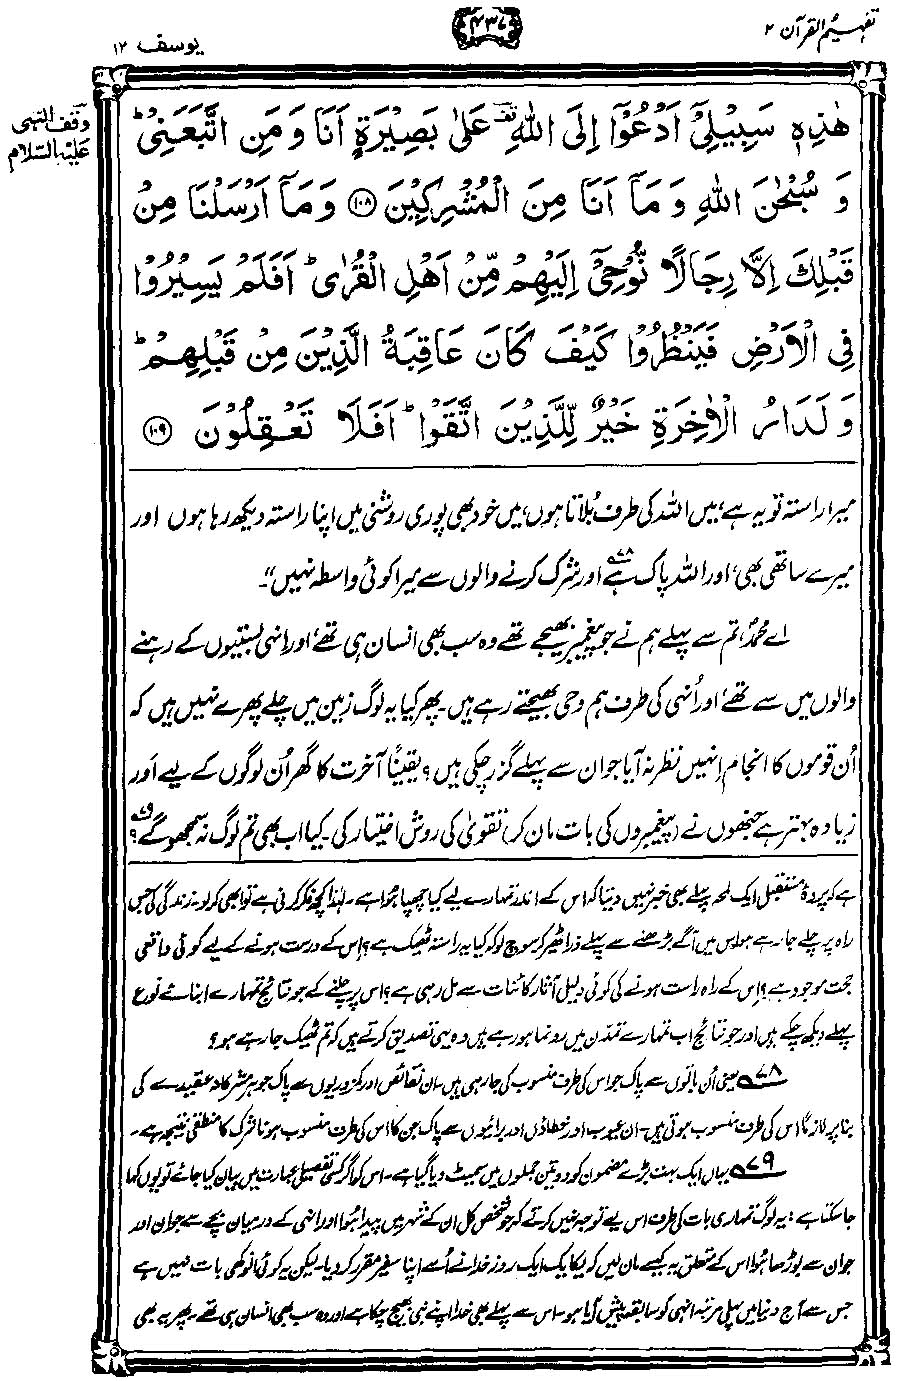 تفہیم القرآن ۲
۴۳۷
یوسف ۱۲
وقف النبی
علیہ السلام
هٰذِهٖ سَبِيْلِيْٓ اَدْعُوْٓا اِلَى اللّٰهِ ۚ عَلٰى بَصِيْرَةٍ اَنَا وَ مَنِ اتَّبَعَنِيْ ؕ
وَ سُبْحٰنَ اللّٰهِ وَ مَآ اَنَا مِنَ الْمُشْرِكِيْنَ ﴿۱۰۸﴾ وَ مَآ اَرْسَلْنَا مِنْ
قَبْلِكَ اِلَّا رِجَالًا نُّوْحِيْٓ اِلَيْهِمْ مِّنْ اَهْلِ الْقُرٰى ؕ اَفَلَمْ يَسِيْرُوْا
فِي الْاَرْضِ فَيَنْظُرُوْا كَيْفَ كَانَ عَاقِبَةُ الَّذِيْنَ مِنْ قَبْلِهِمْ ؕ
وَ لَدَارُ الْاٰخِرَةِ خَيْرٌ لِّلَّذِيْنَ اتَّقَوْا ؕ اَفَلَا تَعْقِلُوْنَ ﴿۱۰۹﴾
میرا راستہ تو یہ ہے، میں اللہ کی طرف بُلاتا ہوں، میں خود بھی پوری روشنی میں اپنا راستہ دیکھ رہا ہوں اور
میرے ساتھی بھی، اور اللہ پاک ہے۷۸ اور شرک کرنے والوں سے میرا کوئی واسطہ نہیں“۔
اے محمدؐ، تم سے پہلے ہم نے جو پیغمبر بھیجے تھے وہ سب بھی انسان ہی تھے، اور انہی بستیوں کے رہنے
والوں میں سے تھے، اور اُنہی کی طرف ہم وحی بھیجتے رہے ہیں۔ پھر کیا یہ لوگ زمین میں چلے پھرے نہیں ہیں کہ
اُن قوموں کا انجام اِنہیں نظر نہ آیا جو ان سے پہلے گزر چکی ہیں؟ یقیناً آخرت کا گھر اُن لوگوں کے لیے اَور
زیادہ بہتر ہے جنھوں نے (پیغمبروں کی بات مان کر) تقویٰ کی روش اختیار کی۔ کیا اب بھی تم لوگ نہ سمجھو گے؟۷۹
ہے کہ پردۂ مستقبل ایک لمحہ پہلے بھی خبر نہیں دیتا کہ اس کے اندر تمہارے لیے کیا چھپا ہوا ہے۔ لہٰذا کچھ فکر کرنی ہے تو ابھی کر لو۔ زندگی کی جس
راہ پر چلے جا رہے ہو اس میں آگے بڑھنے سے پہلے ذرا ٹھیر کر سوچ لو کہ کیا یہ راستہ ٹھیک ہے؟ اِس کے درست ہونے کے لیے کوئی واقعی
حجت موجود ہے؟ اِس کے راہِ راست ہونے کی کوئی دلیل آثارِ کائنات سے مل رہی ہے؟ اس پر چلنے کے جو نتائج تمہارے ابنائے نوع
پہلے دیکھ چکے ہیں اور جو نتائج اب تمہارے تمدّن میں رونما ہو رہے ہیں وہ یہی تصدیق کرتے ہیں کہ تم ٹھیک جا رہے ہو؟
۷۸ یعنی اُن باتوں سے پاک جو اس کی طرف منسوب کی جا رہی ہیں۔ ان نقائص اور کمزوریوں سے پاک جو ہر مشرکانہ عقیدے کی
بنا پر لازماً اس کی طرف منسوب ہوتی ہیں۔ ان عیوب اور خطاؤں اور برائیوں سے پاک جن کا اس کی طرف منسوب ہونا شرک کا منطقی نتیجہ ہے۔
۷۹ یہاں ایک بہت بڑے مضمون کو دو تین جملوں میں سمیٹ دیا گیا ہے۔ اس کو اگر کسی تفصیلی عبارت میں بیان کیا جائے تو یوں کہا
جا سکتا ہے: یہ لوگ تمہاری بات کی طرف اس لیے توجہ نہیں کرتے کہ جو شخص کل ان کے شہر میں پیدا ہوا اور انہی کے درمیان بچے سے جوان اور
جوان سے بوڑھا ہوا اس کے متعلق یہ کیسے مان لیں کہ یکایک ایک روز خدا نے اُسے اپنا سفیر مقرر کر دیا۔ لیکن یہ کوئی انوکھی بات نہیں ہے
جس سے آج دنیا میں پہلی مرتبہ انہی کو سابقہ پیش آیا ہو۔ اس سے پہلے بھی خدا اپنے نبی بھیج چکا ہے اور وہ سب بھی انسان ہی تھے۔ پھر یہ بھی